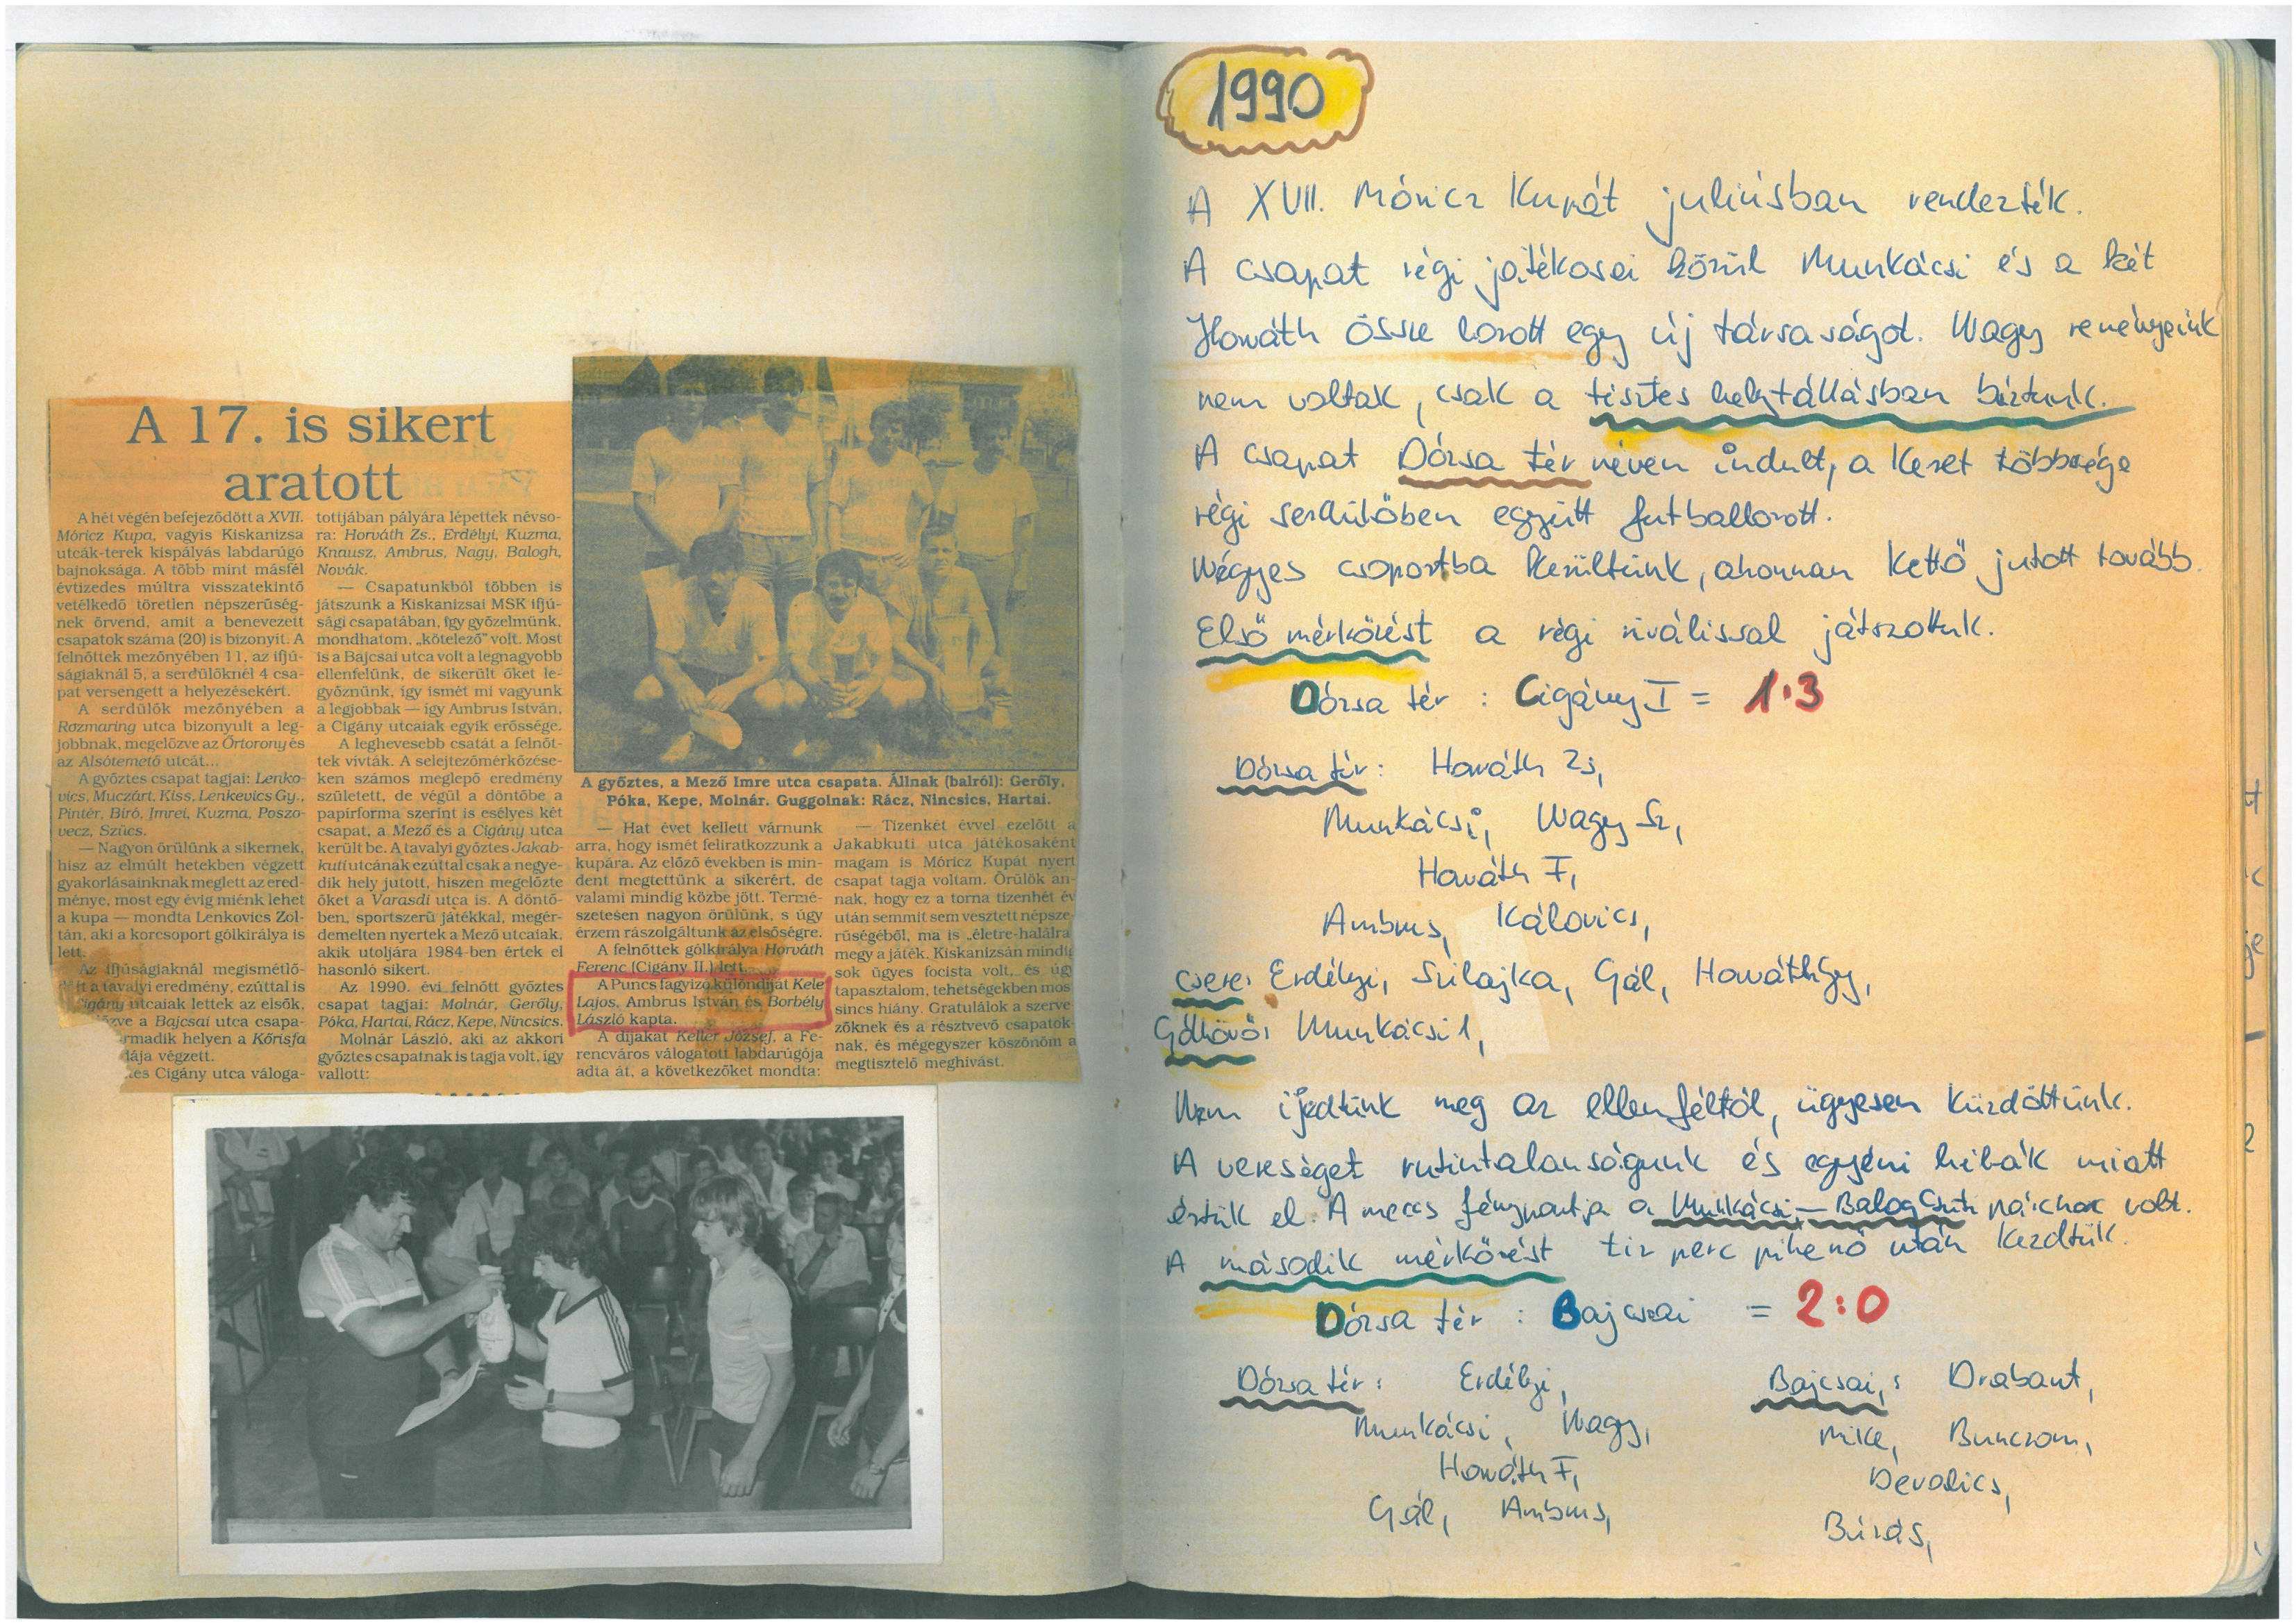 A 17. is sikert
aratott
A hét végén befejeződött a XVII.
Móricz Kupa, vagyis Kiskanizsa
utcák-terek kispályás labdarúgó
bajnoksága. A több mint másfél
évtizedes múltra visszatekintő
vetélkedő töretlen népszerűség-
nek örvend, amit a benevezett
csapatok száma (20) is bizonyít. A
felnőttek mezőnyében 11, az ifjú-
ságiaknál 5, a serdülőknél 4 csa-
pat versengett a helyezésekért.
A serdülők mezőnyében a
Rozmaring utca bizonyult a leg-
jobbnak, megelőzve az Őrtorony és
az Alsótemető utcát...
A győztes csapat tagjai: Lenko-
vics, Muczárt, Kiss, Lenkevics Gy.,
Pintér, Bíró, Imrei, Kuzma, Poszo-
vecz, Szücs.
— Nagyon örülünk a sikernek,
hisz az elmúlt hetekben végzett
gyakorlásainknak meglett az ered-
ménye, most egy évig miénk lehet
a kupa — mondta Lenkovics Zol-
tán, aki a korcsoport gólkirálya is
lett.
Az ifjúságiaknál megismétlő-
tt a tavalyi eredmény, ezúttal is
Cigány utcaiak lettek az elsők,
őzve a Bajcsai utca csapa-
rmadik helyen a Kőrisfa
dája végzett.
es Cigány utca váloga-
tottjában pályára lépettek névso-
ra: Horváth Zs., Erdélyi, Kuzma,
Knausz, Ambrus, Nagy, Balogh,
Novák.
— Csapatunkból többen is
játszunk a Kiskanizsai MSK ifjú-
sági csapatában, így győzelmünk,
mondhatom, „kötelező” volt. Most
is a Bajcsai utca volt a legnagyobb
ellenfelünk, de sikerült őket le-
győznünk, így ismét mi vagyunk
a legjobbak — így Ambrus István,
a Cigány utcaiak egyik erőssége.
A leghevesebb csatát a felnőt-
tek vívták. A selejtezőmérkőzése-
ken számos meglepő eredmény
született, de végül a döntőbe a
papírforma szerint is esélyes két
csapat, a Mező és a Cigány utca
került be. A tavalyi győztes Jakab-
kuti utcának ezúttal csak a negye-
dik hely jutott, hiszen megelőzte
őket a Varasdi utca is. A döntő-
ben, sportszerű játékkal, megér-
demelten nyertek a Mező utcaiak,
akik utoljára 1984-ben értek el
hasonló sikert.
Az 1990. évi felnőtt győztes
csapat tagjai: Molnár, Gerőly,
Póka, Hartai, Rácz, Kepe, Nincsics.
Molnár László, aki az akkori
győztes csapatnak is tagja volt, így
vallott:
A győztes, a Mező Imre utca csapata. Állnak (balról): Gerőly,
Póka, Kepe, Molnár. Guggolnak: Rácz, Nincsics, Hartai.
— Hat évet kellett várnunk
arra, hogy ismét feliratkozzunk a
kupára. Az előző években is min-
dent megtettünk a sikerért, de
valami mindig közbe jött. Termé-
szetesen nagyon örülünk, s úgy
érzem rászolgáltunk az elsőségre.
A felnőttek gólkirálya Horváth
Ferenc (Cigány II.) lett.
A Puncs fagyizó különdíját Kele
Lajos, Ambrus István és Borbély
László kapta.
A díjakat Keller József, a Fe-
rencváros válogatott labdarúgója
adta át, a következőket mondta:
— Tizenkét évvel ezelőtt a
Jakabkuti utca játékosaként
magam is Móricz Kupát nyert
csapat tagja voltam. Örülök an-
nak, hogy ez a torna tizenhét év
után semmit sem vesztett népsze-
rűségéből, ma is „életre-halálra
megy a játék. Kiskanizsán mindig
sok ügyes focista volt, és úgy
tapasztalom, tehetségekben mos
sincs hiány. Gratulálok a szerve-
zőknek és a résztvevő csapatok-
nak, és mégegyszer köszönöm a
megtisztelő meghívást.
1990
A XVII. Móricz Kupát juliúsban rendezték.
A csapat régi játékosai közül Munkácsi és a két
Horváth össze hozott egy új társaságot. Nagy reményeink
nem voltak, csak a tisztes helytállásban bíztunk.
A csapat Dózsa tér néven indult, a keret többsége
régi serdülőben együtt futballozott.
Négyes csoportba kerültünk, ahonnan kettő jutott tovább.
Első mérkőzést a régi riválissal játszottuk.
Dózsa tér : Cigány I = 1:3
Dózsa tér: Horváth Zs,
Munkácsi, Nagy Sz,
Horváth F,
Ambrus, Kálovics,
Csere: Erdélyi, Szilajka, Gál, Horváth Gy,
Góllövő: Munkácsi 1,
Nem ijedtünk meg az ellenféltől, ügyesen küzdöttünk.
A vereséget rutintalanságunk és egyéni hibák miatt
értük el. A meccs fénypontja a Munkácsi – Balog Csuti párharc volt.
A második mérkőzést tíz perc pihenő után kezdtük.
Dózsa tér : Bajcsai = 2:0
Dózsa tér: Erdélyi,
Munkácsi, Nagy,
Horváth F,
Gál, Ambrus,
Bajcsai,: Drabant,
Mike, Bunczom,
Dévalics,
Búzás,